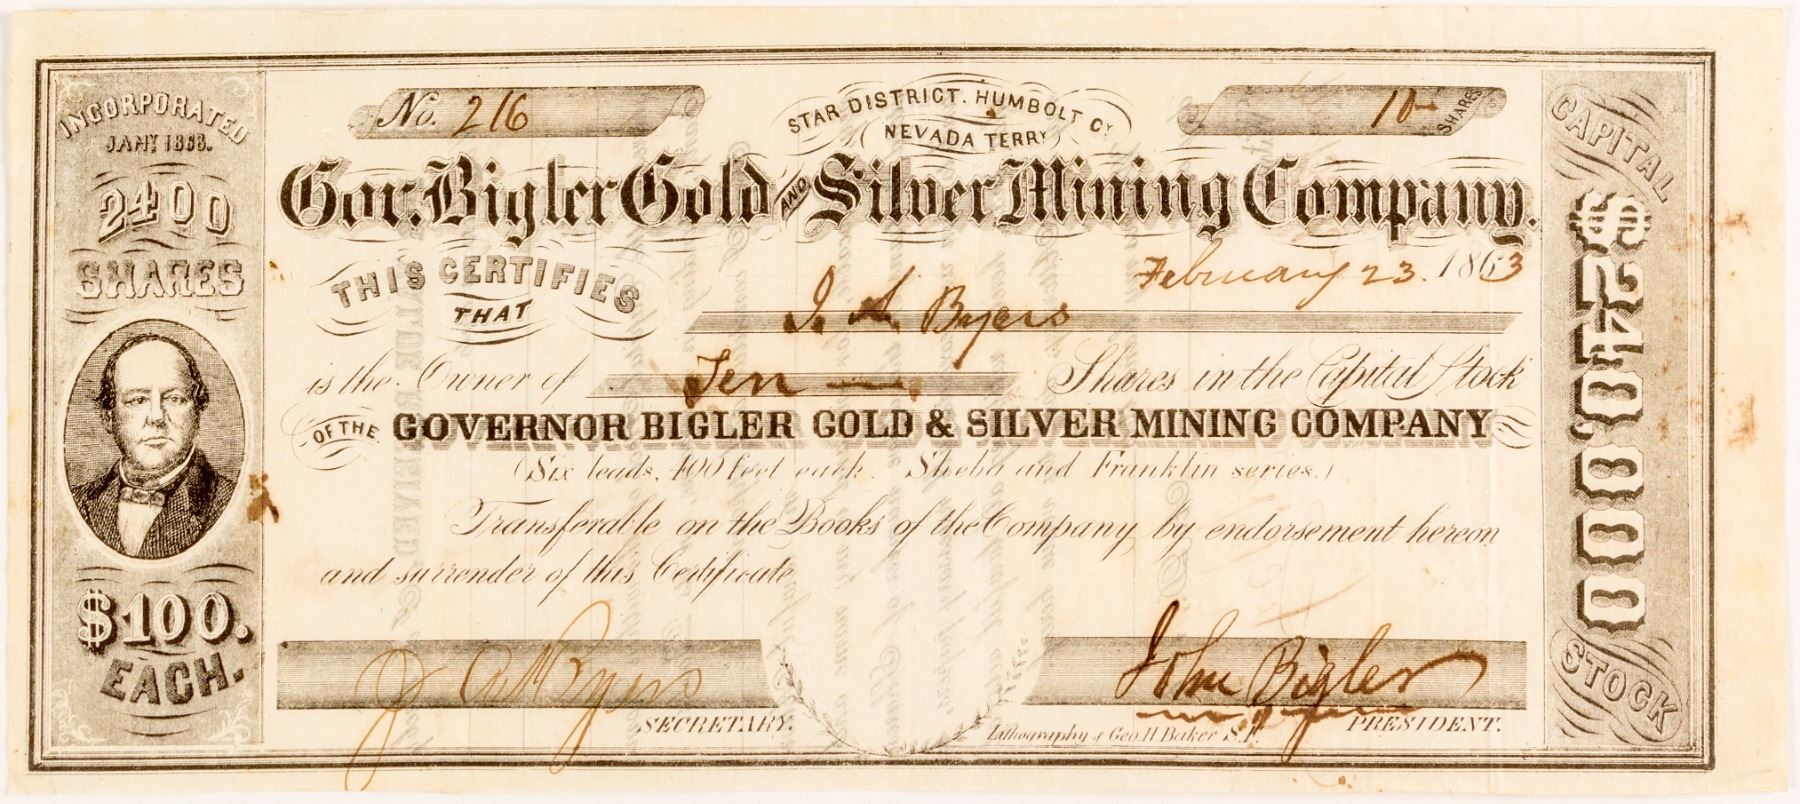 INCORPORATED
JANY. 1863.
2400
SHARES
$100.
EACH.
No. 216
STAR DISTRICT. HUMBOLT CY
NEVADA TERRY
10 SHARES
Gov. Bigler Gold AND Silver Mining Company.
February 23. 1863
THIS CERTIFIES
THAT
J. A. Byers
is the Owner of Ten Shares in the Capital Stock
OF THE GOVERNOR BIGLER GOLD & SILVER MINING COMPANY
(Six leads, 400 feet each. Sheba and Franklin series.)
Transferable on the Books of the Company, by endorsement hereon
and surrender of this Certificate
J A Byers
SECRETARY.
John Bigler
PRESIDENT.
Lithography of Geo. H. Baker S.F.
CAPITAL
$240,000
STOCK